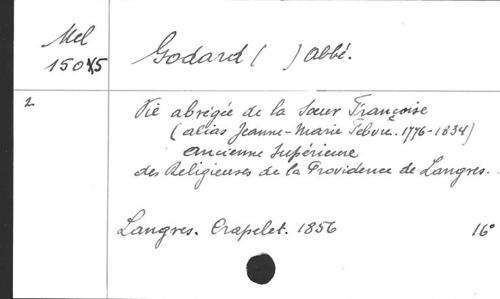 Mel
15045
Godard ( ) Abbé.
2
Vie abrégée de la Sœur Françoise
(alias Jeanne-Marie 1776-1834)
Ancienne Supérieure
des Religieuses de la Providence de Langres.
Langres. Crapelet. 1856 16°